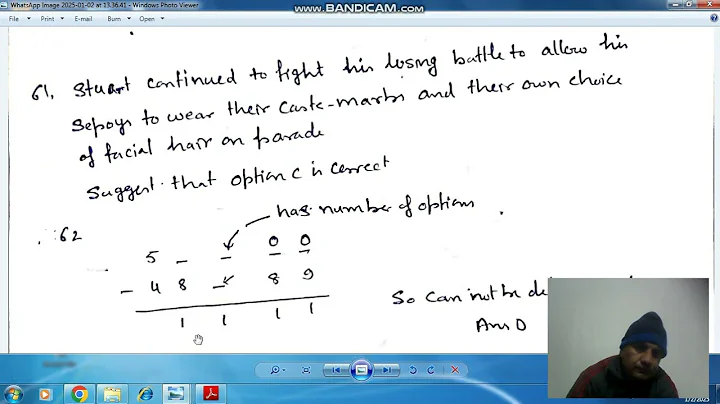 WhatsApp Image 2025-01-02 at 13.36.41 - Windows Photo Viewer
WWW.BANDICAM.COM
File Print E-mail Burn Open
61. Stuart continued to fight his losing battle to allow his
Sepoys to wear their Caste-marks and their own choice
of facial hair on parade
Suggest that option C is correct
has number of options
62
5 _ _ 0 0
- 4 8 _ 8 9
1 1 1 1
So can not be
Ans D
1/2/2025